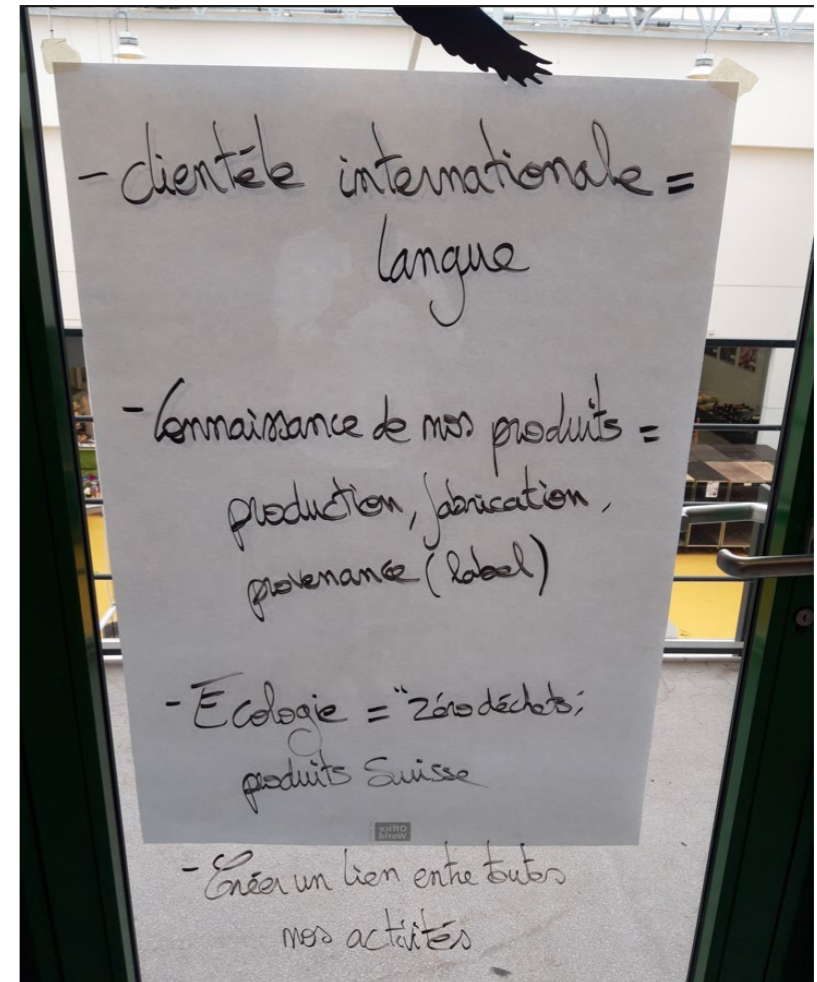 - clientèle internationale =
langue
- Connaissance de nos produits =
production, fabrication,
provenance (label)
- Ecologie = "Zéro déchets;
produits Suisse
Office
World
- Créer un lien entre toutes
nos activités